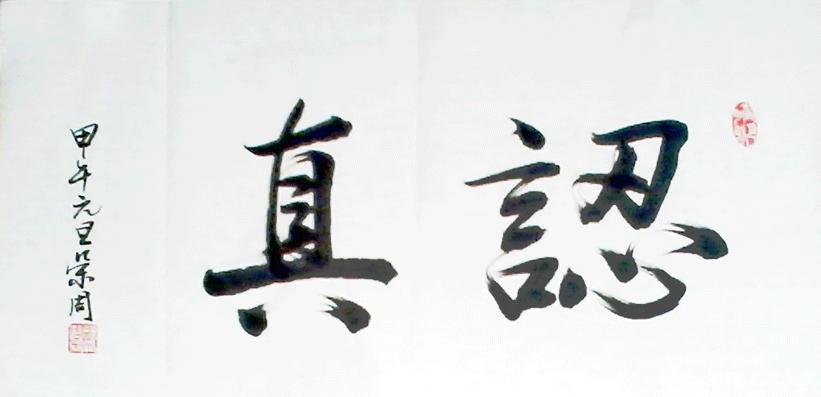 認真
甲午元旦 周